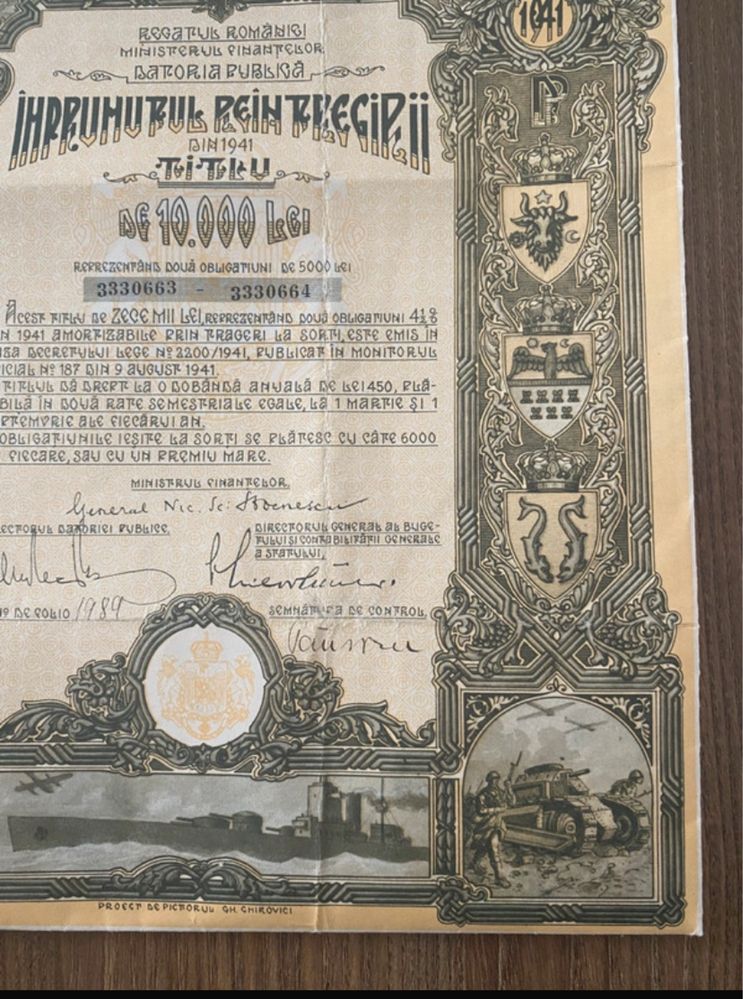 1941
REGATUL ROMÂNIEI
MINISTERUL FINANTELOR
DATORIA PUBLICĂ
ÎMPRUMUTUL REÎNTREGIRII
DIN 1941
TITLU
DE 10.000 LEI
REPREZENTÂND DOUĂ OBLIGATIUNI DE 5000 LEI
3330663 - 3330664
ACEST TITLU DE ZECE MII LEI, REPREZENTÂND DOUĂ OBLIGATIUNI 4½%
N 1941 AMORTIZABILE PRIN TRAGERI LA SORTI, ESTE EMIS ÎN
AZA DECRETULUI LEGE Nº 2200/1941, PUBLICAT ÎN MONITORUL
ICIAL Nº 187 DIN 9 AUGUST 1941.
TITLUL DĂ DREPT LA O DOBÂNDĂ ANUALĂ DE LEI 450, PLĂ-
BILĂ ÎN DOUĂ RATE SEMESTRIALE EGALE, LA 1 MARTIE ȘI 1
PTEMVRIE ALE FIECĂRUI AN.
OBLIGATIUNILE IEȘITE LA SORTI SE PLĂTESC CU CÂTE 6000
FIECARE, SAU CU UN PREMIU MARE.
MINISTRUL FINANTELOR,
General Nic. Sc. Stoenescu
RECTORUL DATORIEI PUBLICE,
DIRECTORUL GENERAL AL BUGE-
TULUI SI CONTABILITĂTII GENERALE
A STATULUI,
Nº DE FOLIO 1989
SEMNĂTURA DE CONTROL,
PROECT DE PICTORUL GH. CHIROVICI